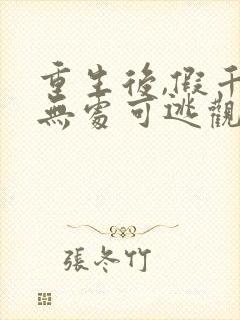 重生後,假千
無處可逃觀
張冬竹